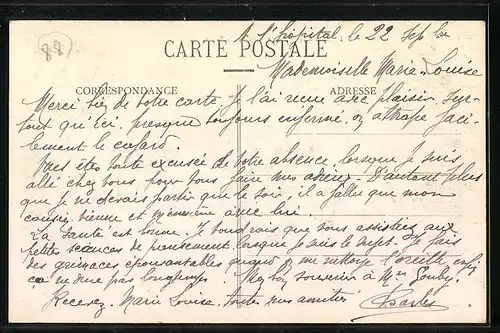 88
A l'hôpital, le 22 Sept
CARTE POSTALE
Mademoiselle Marie-Louise
CORRESPONDANCE ADRESSE
Merci bien de votre carte. Je l'ai reçue avec plaisir. Sur-
tout qu'ici, presque toujours enfermé, on attrape faci-
lement le cafard.
Vous êtes toute excusée de votre absence, lorsque je suis
allé chez vous pour vous faire mes adieux. D'autant plus
que je ne devais partir que le soir, il a fallu que mon
cousin vienne et m'emmène avec lui.
La santé est bonne. Je voudrais que vous assistiez aux
petites séances de pansement, lorsque je Je fais
des grimaces épouvantables quand on me l'oreille, enfin
ça ne dure pas longtemps. Mes bons souvenirs à Mme
Recevez, Marie Louise, toutes mes amitiés
Charles